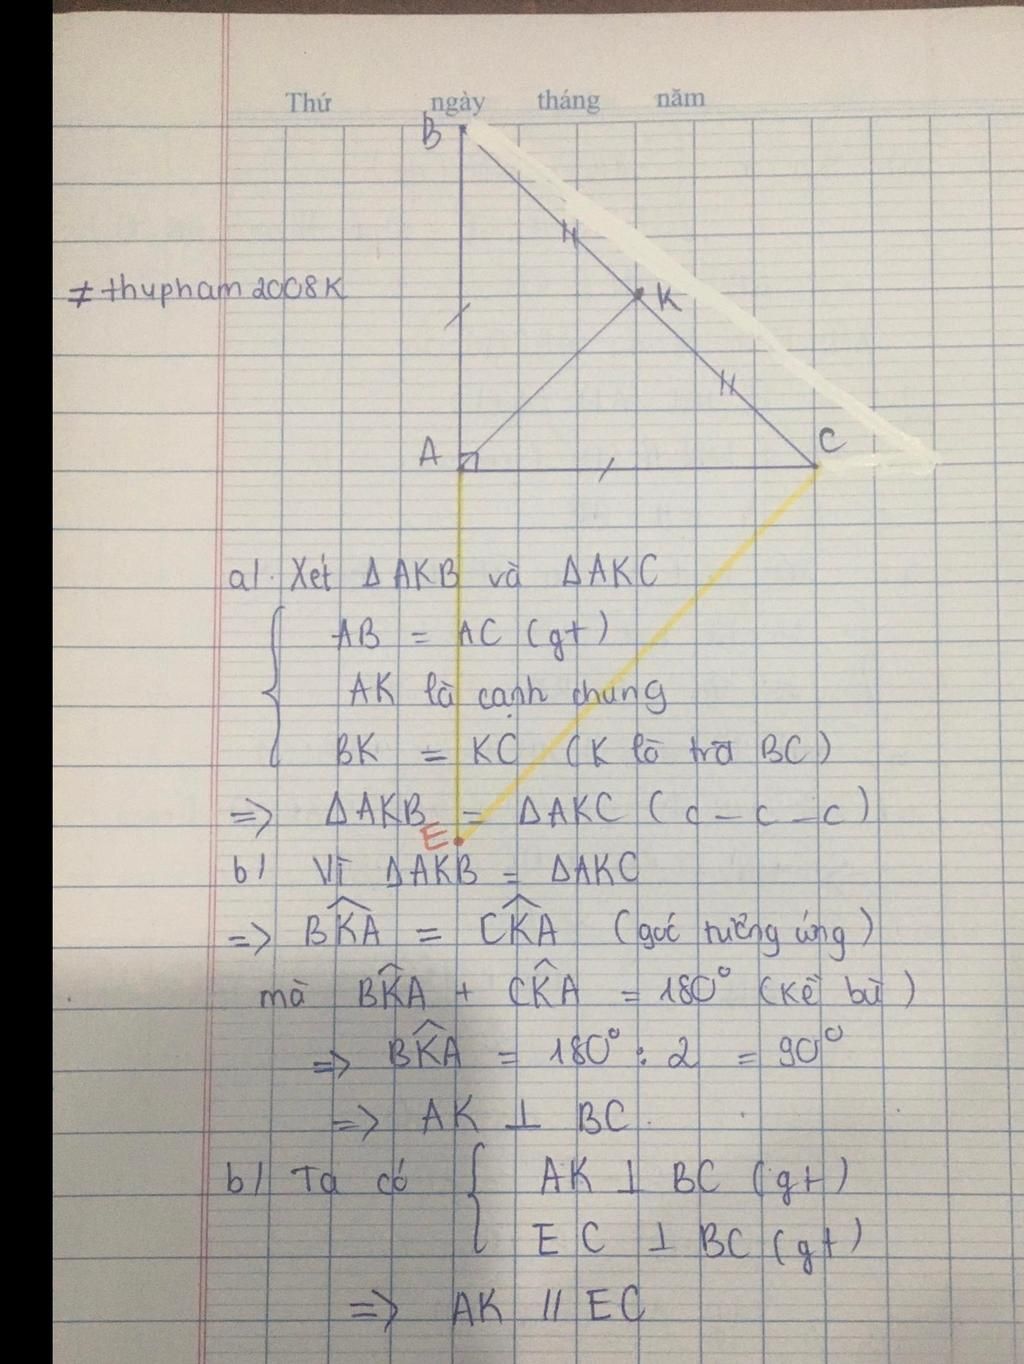 Thứ ngày tháng năm
B
≠ thupham2008K
K
A
C
a/. Xét ΔAKB và ΔAKC
AB = AC (gt)
AK là cạnh chung
BK = KC (K là trđ BC)
=> ΔAKB = ΔAKC (c - c - c)
E
b/ Vì ΔAKB = ΔAKC
=> BK̂A = CK̂A (góc tương ứng)
mà BK̂A + CK̂A = 180° (kề bù)
=> BK̂A = 180° : 2 = 90°
=> AK ⊥ BC.
b/ Ta có { AK ⊥ BC (gt)
EC ⊥ BC (gt)
=> AK // EC